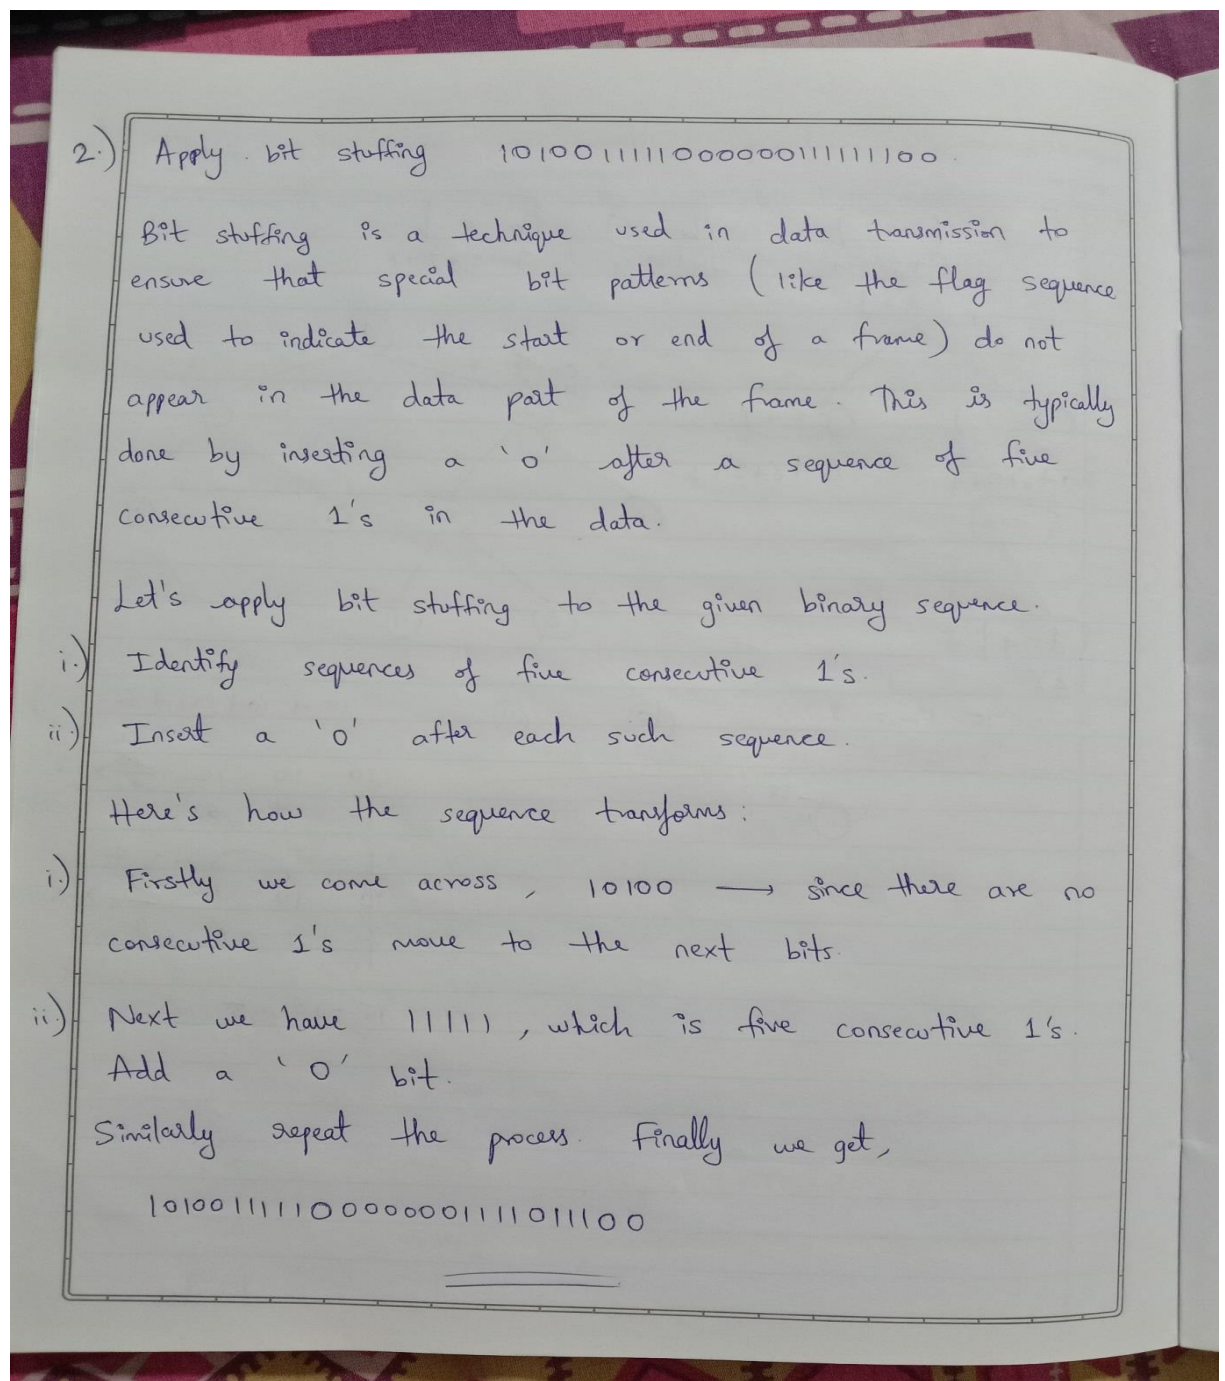 2.) Apply bit stuffing 1010011111000000111111100.
Bit stuffing is a technique used in data transmission to
ensure that special bit patterns (like the flag sequence
used to indicate the start or end of a frame) do not
appear in the data part of the frame. This is typically
done by inserting a '0' after a sequence of five
consecutive 1's in the data.
Let's apply bit stuffing to the given binary sequence.
i.) Identify sequences of five consecutive 1's.
ii.) Insert a '0' after each such sequence.
Here's how the sequence transforms:
i.) Firstly we come across, 10100 → since there are no
consecutive 1's move to the next bits.
ii.) Next we have 11111, which is five consecutive 1's.
Add a '0' bit.
Similarly repeat the process. Finally we get,
101001111100000001111011100